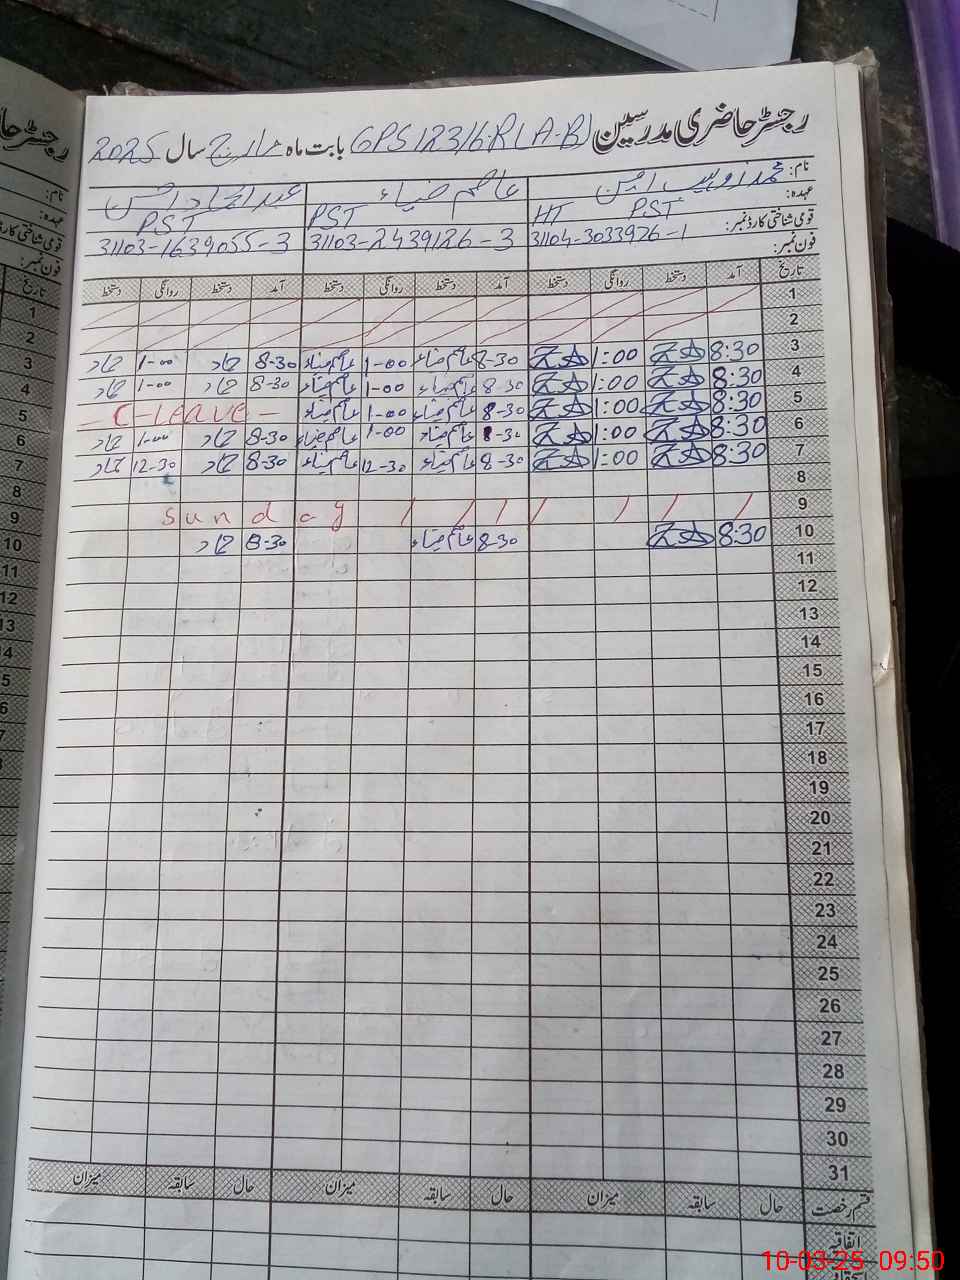 رجسٹر حاضری مدرسین GPS 123/6.R (A-B) بابت ماہ مارچ سال 2025
نام: محمد زوہیب امین عاصم ضیاء
عہدہ: HT PST PST PST
قومی شناختی کارڈ نمبر: 31104-3033926-1 31103-2439126-3 31103-1639055-3
فون نمبر:
تاریخ آمد دستخط روانگی دستخط آمد دستخط روانگی دستخط آمد دستخط روانگی دستخط
1
2
3 8:30 1:00 8-30 عاصم ضیاء 1-00 عاصم ضیاء 8-30 1-00
4 8:30 1:00 8-30 عاصم ضیاء 1-00 عاصم ضیاء 8-30 1-00
5 8:30 1:00 8-30 عاصم ضیاء 1-00 عاصم ضیاء - C-LEAVE -
6 8:30 1:00 8-30 عاصم ضیاء 1-00 عاصم ضیاء 8-30 1-00
7 8:30 1:00 8-30 عاصم ضیاء 12-30 عاصم ضیاء 8-30 12-30
8
9 Sunday
10 8:30 8-30 عاصم ضیاء 8-30
11
12
13
14
15
16
17
18
19
20
21
22
23
24
25
26
27
28
29
30
31
قسم رخصت حال سابقہ میزان حال سابقہ میزان حال سابقہ میزان
اتفاقیہ
10-03-25 09:50